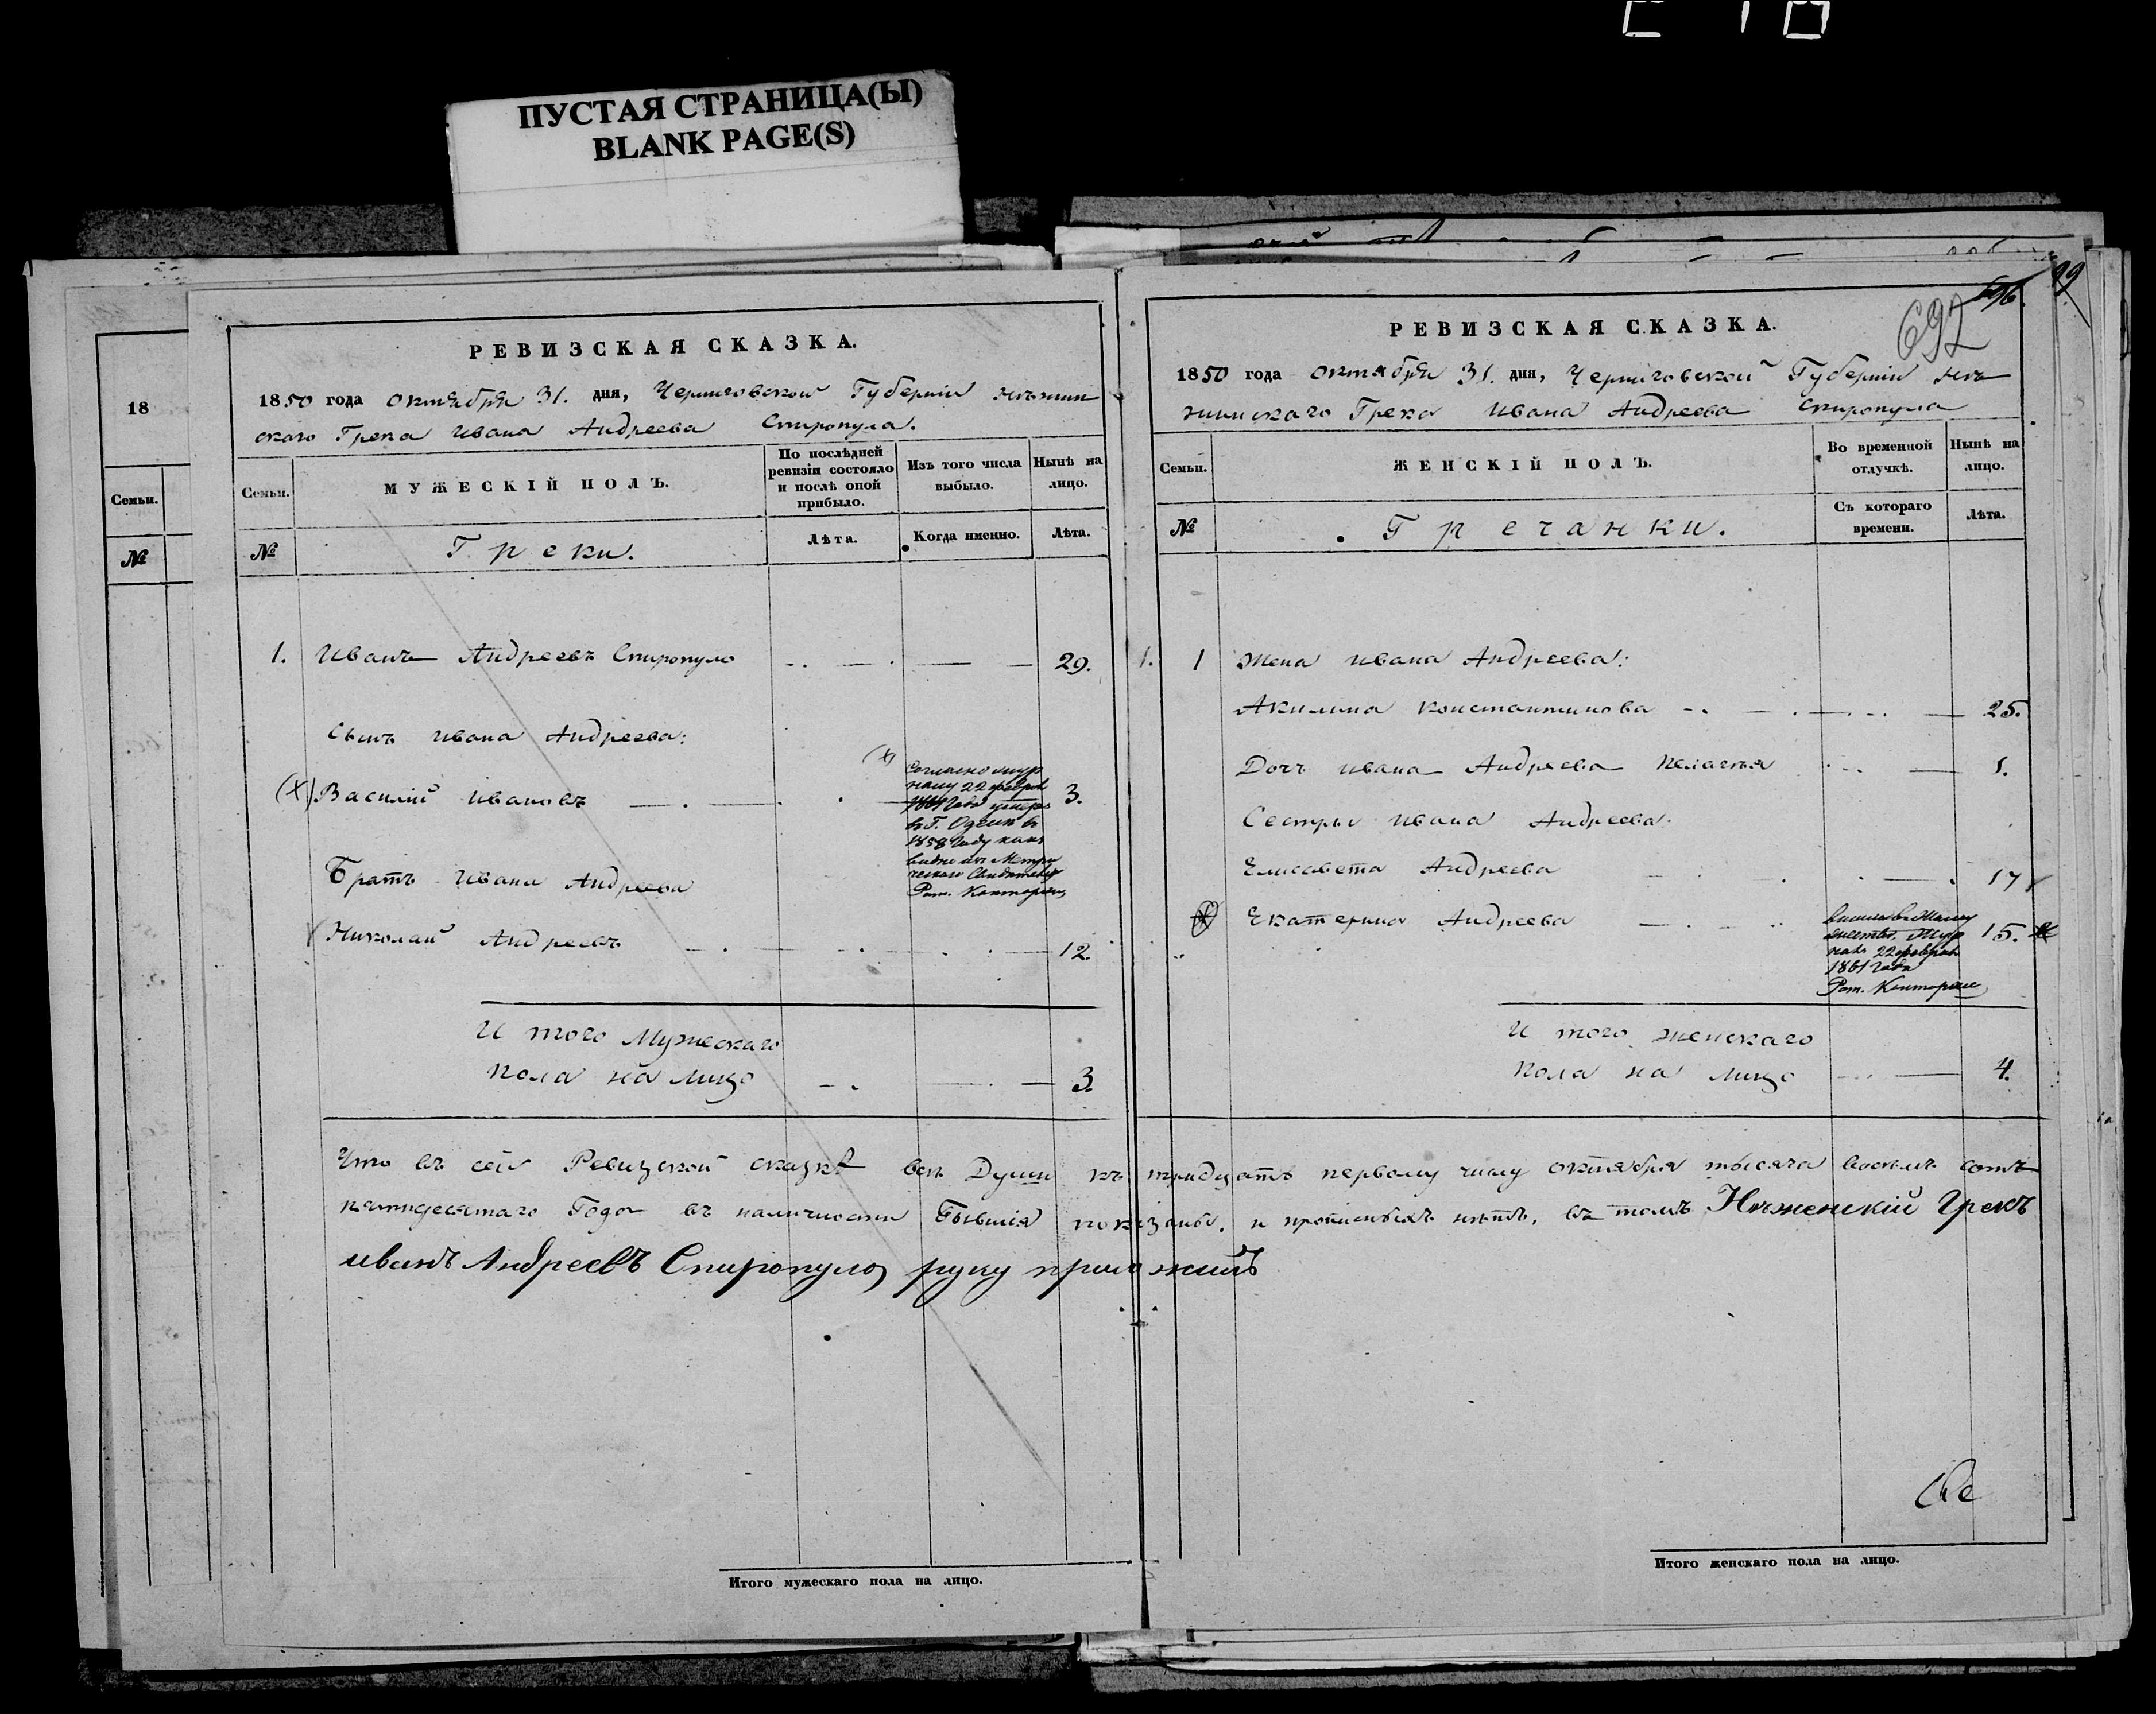 ПУСТАЯ СТРАНИЦА(Ы)
BLANK PAGE(S)
18
Семьи.
№
РЕВИЗСКАЯ СКАЗКА.
1850 года октября 31. дня, Черниговской Губернiи нѣжин
скаго Грека Ивана Андреева Спиропула.
Семьи.
МУЖЕСКІЙ ПОЛЪ.
По послѣдней
ревизіи состояло
и послѣ оной
прибыло.
Изъ того числа
выбыло.
Нынѣ на
лицо.
№
Греки.
Лѣта.
Когда именно.
Лѣта.
1. Иванъ Андреевъ Спиропуло 29.
Сынъ Ивана Андреева:
(х) Василій Ивановъ 3.
(х)
Согласно жур
налу 22 феврал
1861 Года умеръ
въ Г. Одессѣ въ
1858 Году какъ
видно изъ Метри
ческаго Свидѣтель
Рат.
Братъ Ивана Андреева
Николай Андреевъ 12.
И того Мужескаго
пола на лицо 3.
РЕВИЗСКАЯ СКАЗКА.
692
99
1850 года октября 31. дня, Черниговской Губерніи нѣ
жинскаго Грека Ивана Андреева Спиропула
Семьи.
ЖЕНСКІЙ ПОЛЪ.
Во временной
отлучкѣ.
Нынѣ на
лицо.
№
Гречанки.
Съ котораго
времени.
Лѣта.
1. 1 Жена Ивана Андреева:
Акилина Константинова 25.
Дочь Ивана Андреева Пелагея 1.
Сестры Ивана Андреева:
Елисавета Андреева 17
Екатерина Андреева 15.
вышла въ Замуж
Жур
нал. 22 феврал
1861 Года
Рат.
И того женскаго
пола на лицо 4.
Что въ сей Ревизской сказкѣ всѣ Души къ тридцать первому числу октября тысяча восемь сотъ
пятидесятаго Года въ наличности Бывшія показаны, и прописныхъ нѣтъ, въ томъ Нѣженскій Грекъ
иванъ Андреевъ Спиропуло руку приложилъ
Итого мужескаго пола на лицо.
Итого женскаго пола на лицо.